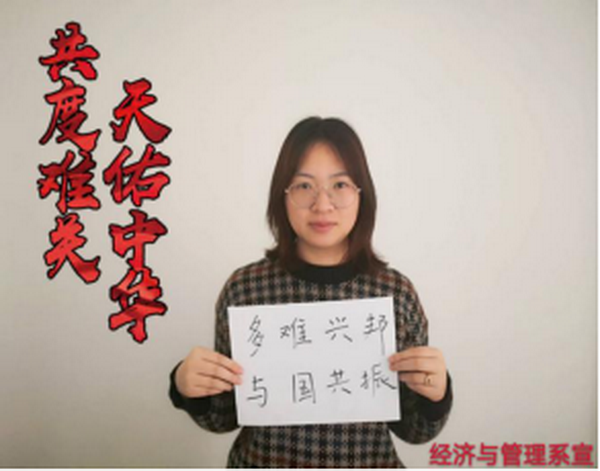 天佑中华
共度难关
多难兴邦
与国共振
经济与管理系宣